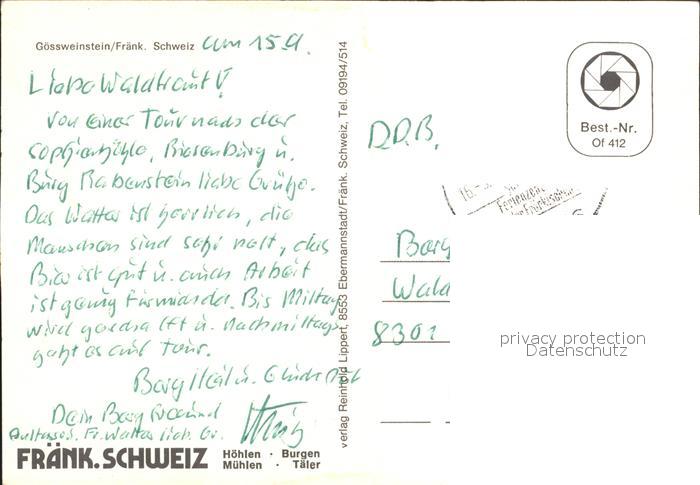 Gössweinstein/Fränk. Schweiz am 15.9.
Liebe Waldtraut!
von einer Tour nach der
Sophienhöhle, Riesenburg u.
Burg Rabenstein liebe Grüße.
Das Wetter ist herrlich, die
Menschen sind sehr nett, das
Bier ist gut u. auch Arbeit
ist genug für mich da. Bis Mittag
wird geschafft u. nachmittags
geht es auf Tour.
Berg Heil u. Glück
Dein Berg Freund
Fr. Walter lieb. Gr.
FRÄNK. SCHWEIZ
Höhlen · Burgen
Mühlen · Täler
verlag Reinhold Lippert, 8553 Ebermannstadt/Fränk. Schweiz, Tel. 09194/514
Best.-Nr.
Of 412
D.D.R.
Berg
Wald
8301
privacy protection
Datenschutz